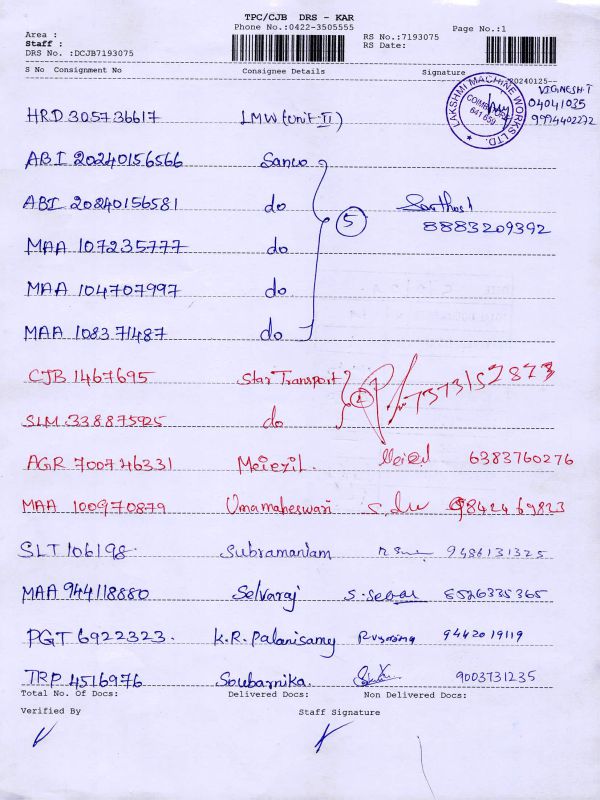 TPC/CJB DRS - KAR
Phone No.:0422-3505555
Area :
Staff :
DRS No. :DCJB7193075
RS No.:7193075
RS Date:
Page No.:1
S No Consignment No Consignee Details Signature
20240125--
LAKSHMI MACHINE WORKS LTD. COIMBATORE 641 659
VIGNESH.T
04041035
9994402272
HRD 305736617 LMW (Unit-II)
ABI 20240156566 Sanco
ABI 20240156581 do 5
8883209392
MAA 107235777 do
MAA 104707997 do
MAA 108371487 do
CJB 1467695 Star Transport 2 7373152873
SLM 338875925 do
AGR 700746331 Meiezil. 6383760276
MAA 100970879 Umamaheswari 9842469823
SLT 106198. Subramaniam 9486131325
MAA 944118880 Selvaraj 8526335365
PGT 6922323. K.R. Palanisamy 9442019119
TRP 4516976 Soubarnika. 9003731235
Total No. Of Docs: Delivered Docs: Non Delivered Docs:
Verified By Staff Signature